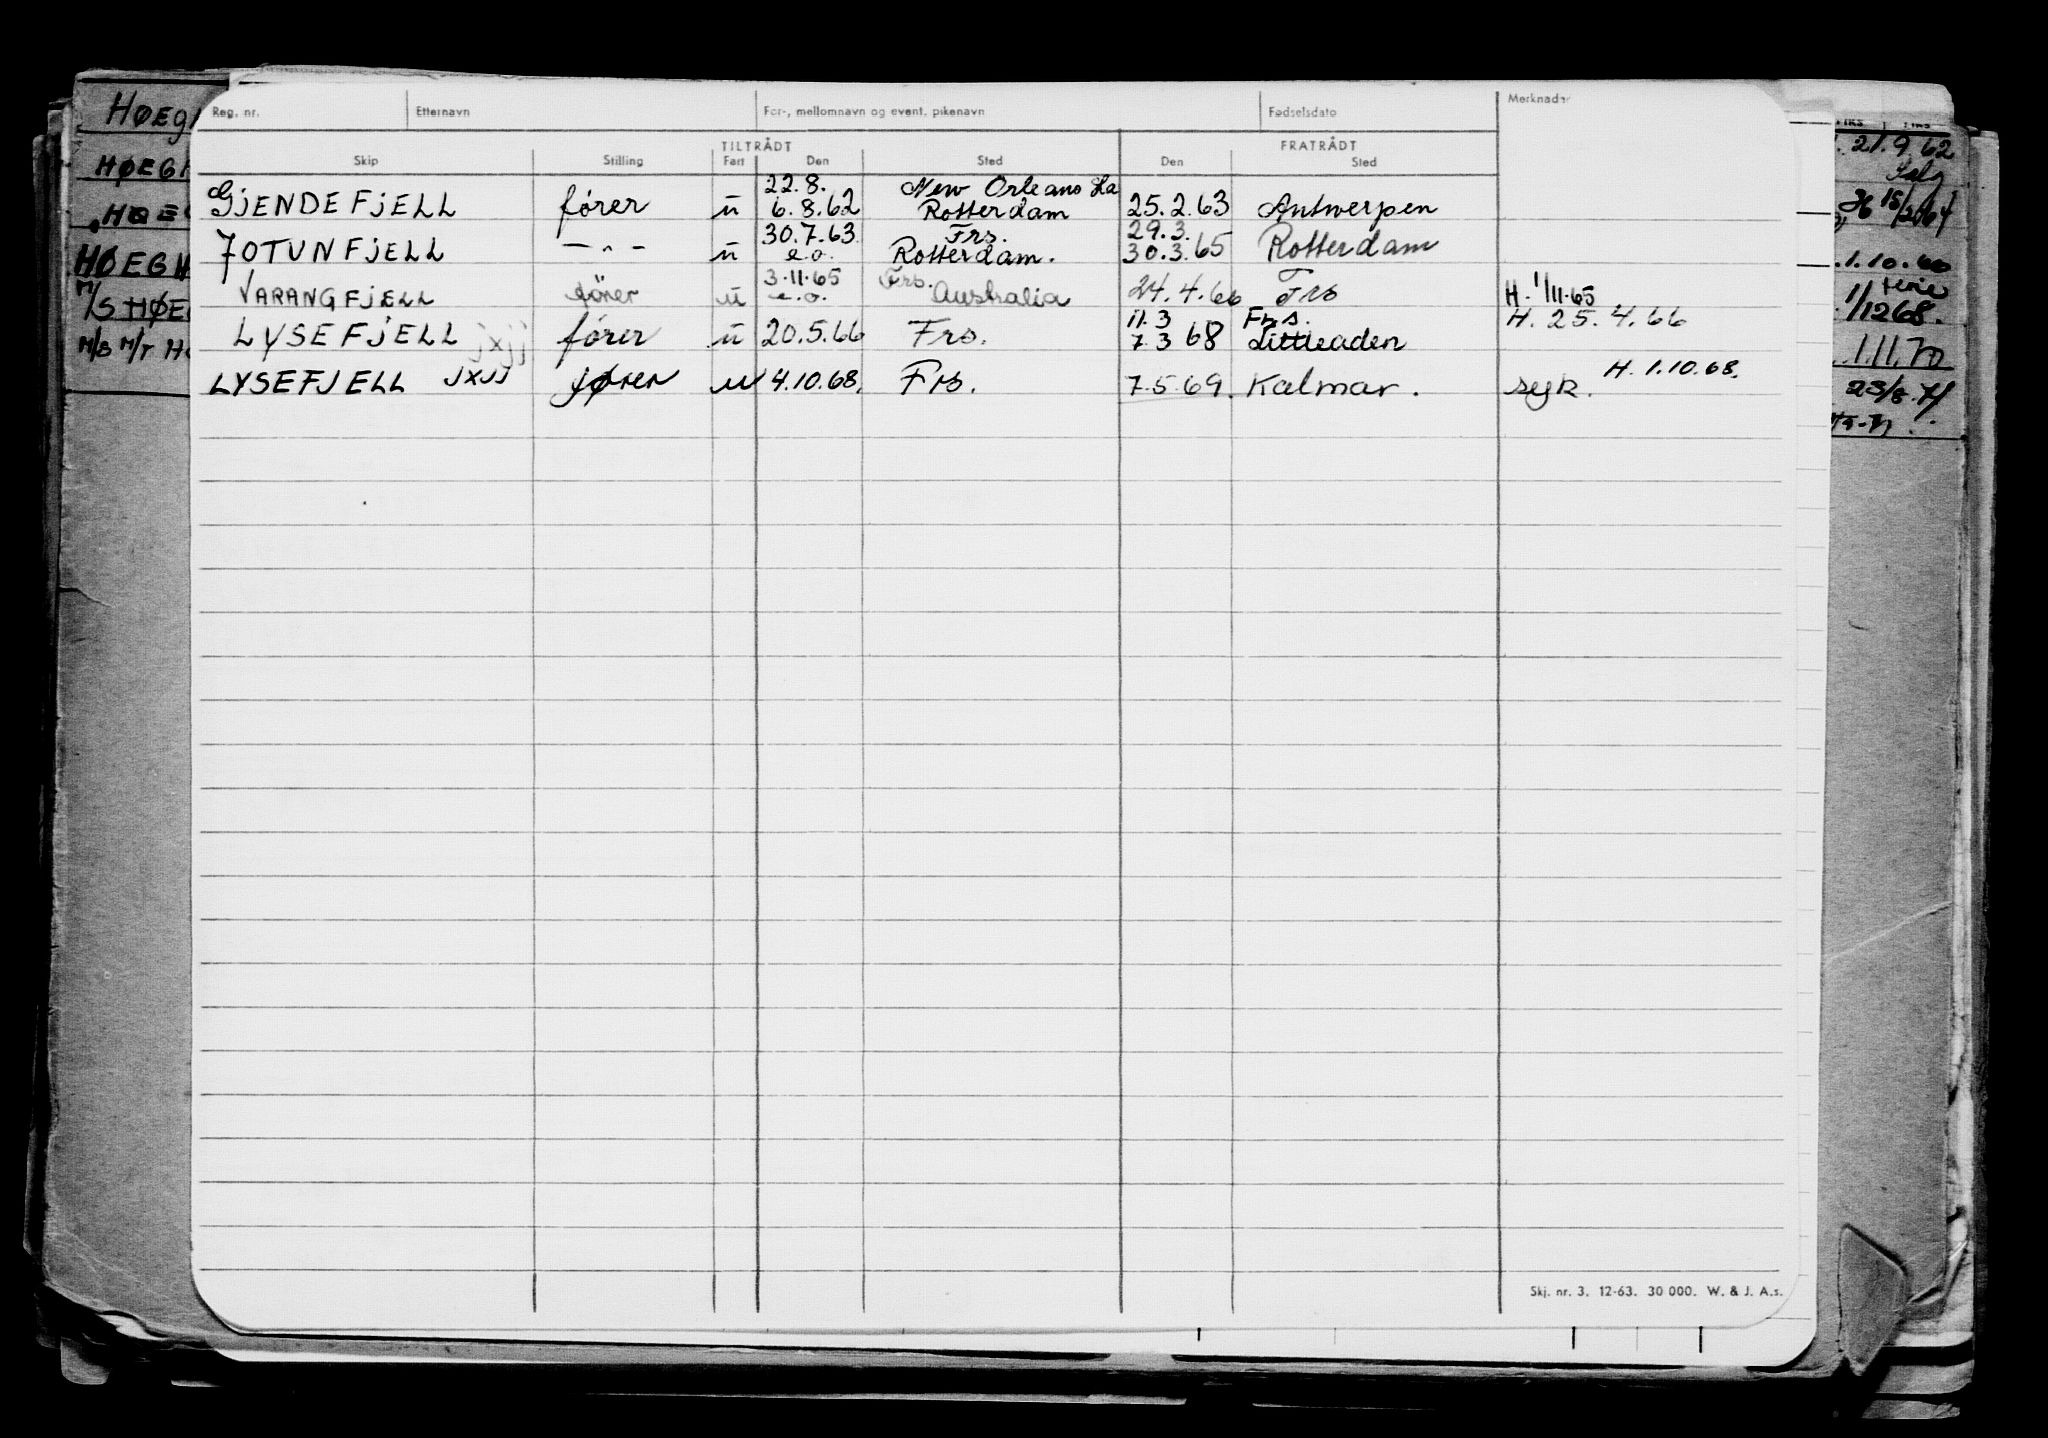 Reg. nr. Etternavn For-, mellomnavn og event. pikenavn Fødselsdato Merknader
TILTRÅDT FRATRÅDT
Skip Stilling Fart Den Sted Den Sted
22.8. New Orleans La
GJENDEFJELL fører u 6.8.62 Rotterdam 25.2.63 Antwerpen
30.7.63 Frs. 29.3.
JOTUNFJELL — " — u e.o. Rotterdam. 30.3.65 Rotterdam
3.11.65 Frs.
VARANGFJELL fører u e.o. Australia 24.4.66 Frs H. 1/11-65
11.3 Frs. H. 25.4.66
LYSEFJELL jxjj fører u 20.5.66 Frs. 7.3 68 Littleaden
H. 1.10.68.
LYSEFJELL JXJJ fører u 4.10.68. Frs. 7.5.69. Kalmar. syk.
Skj. nr. 3. 12-63. 30 000. W. & J. A.s.
HØEG
HØEG
HØEG
HØEG H
M/S HØE
M/S M/T HØ
21.9.62
1.10.66
1/1268.
1.11.70
23/8.71